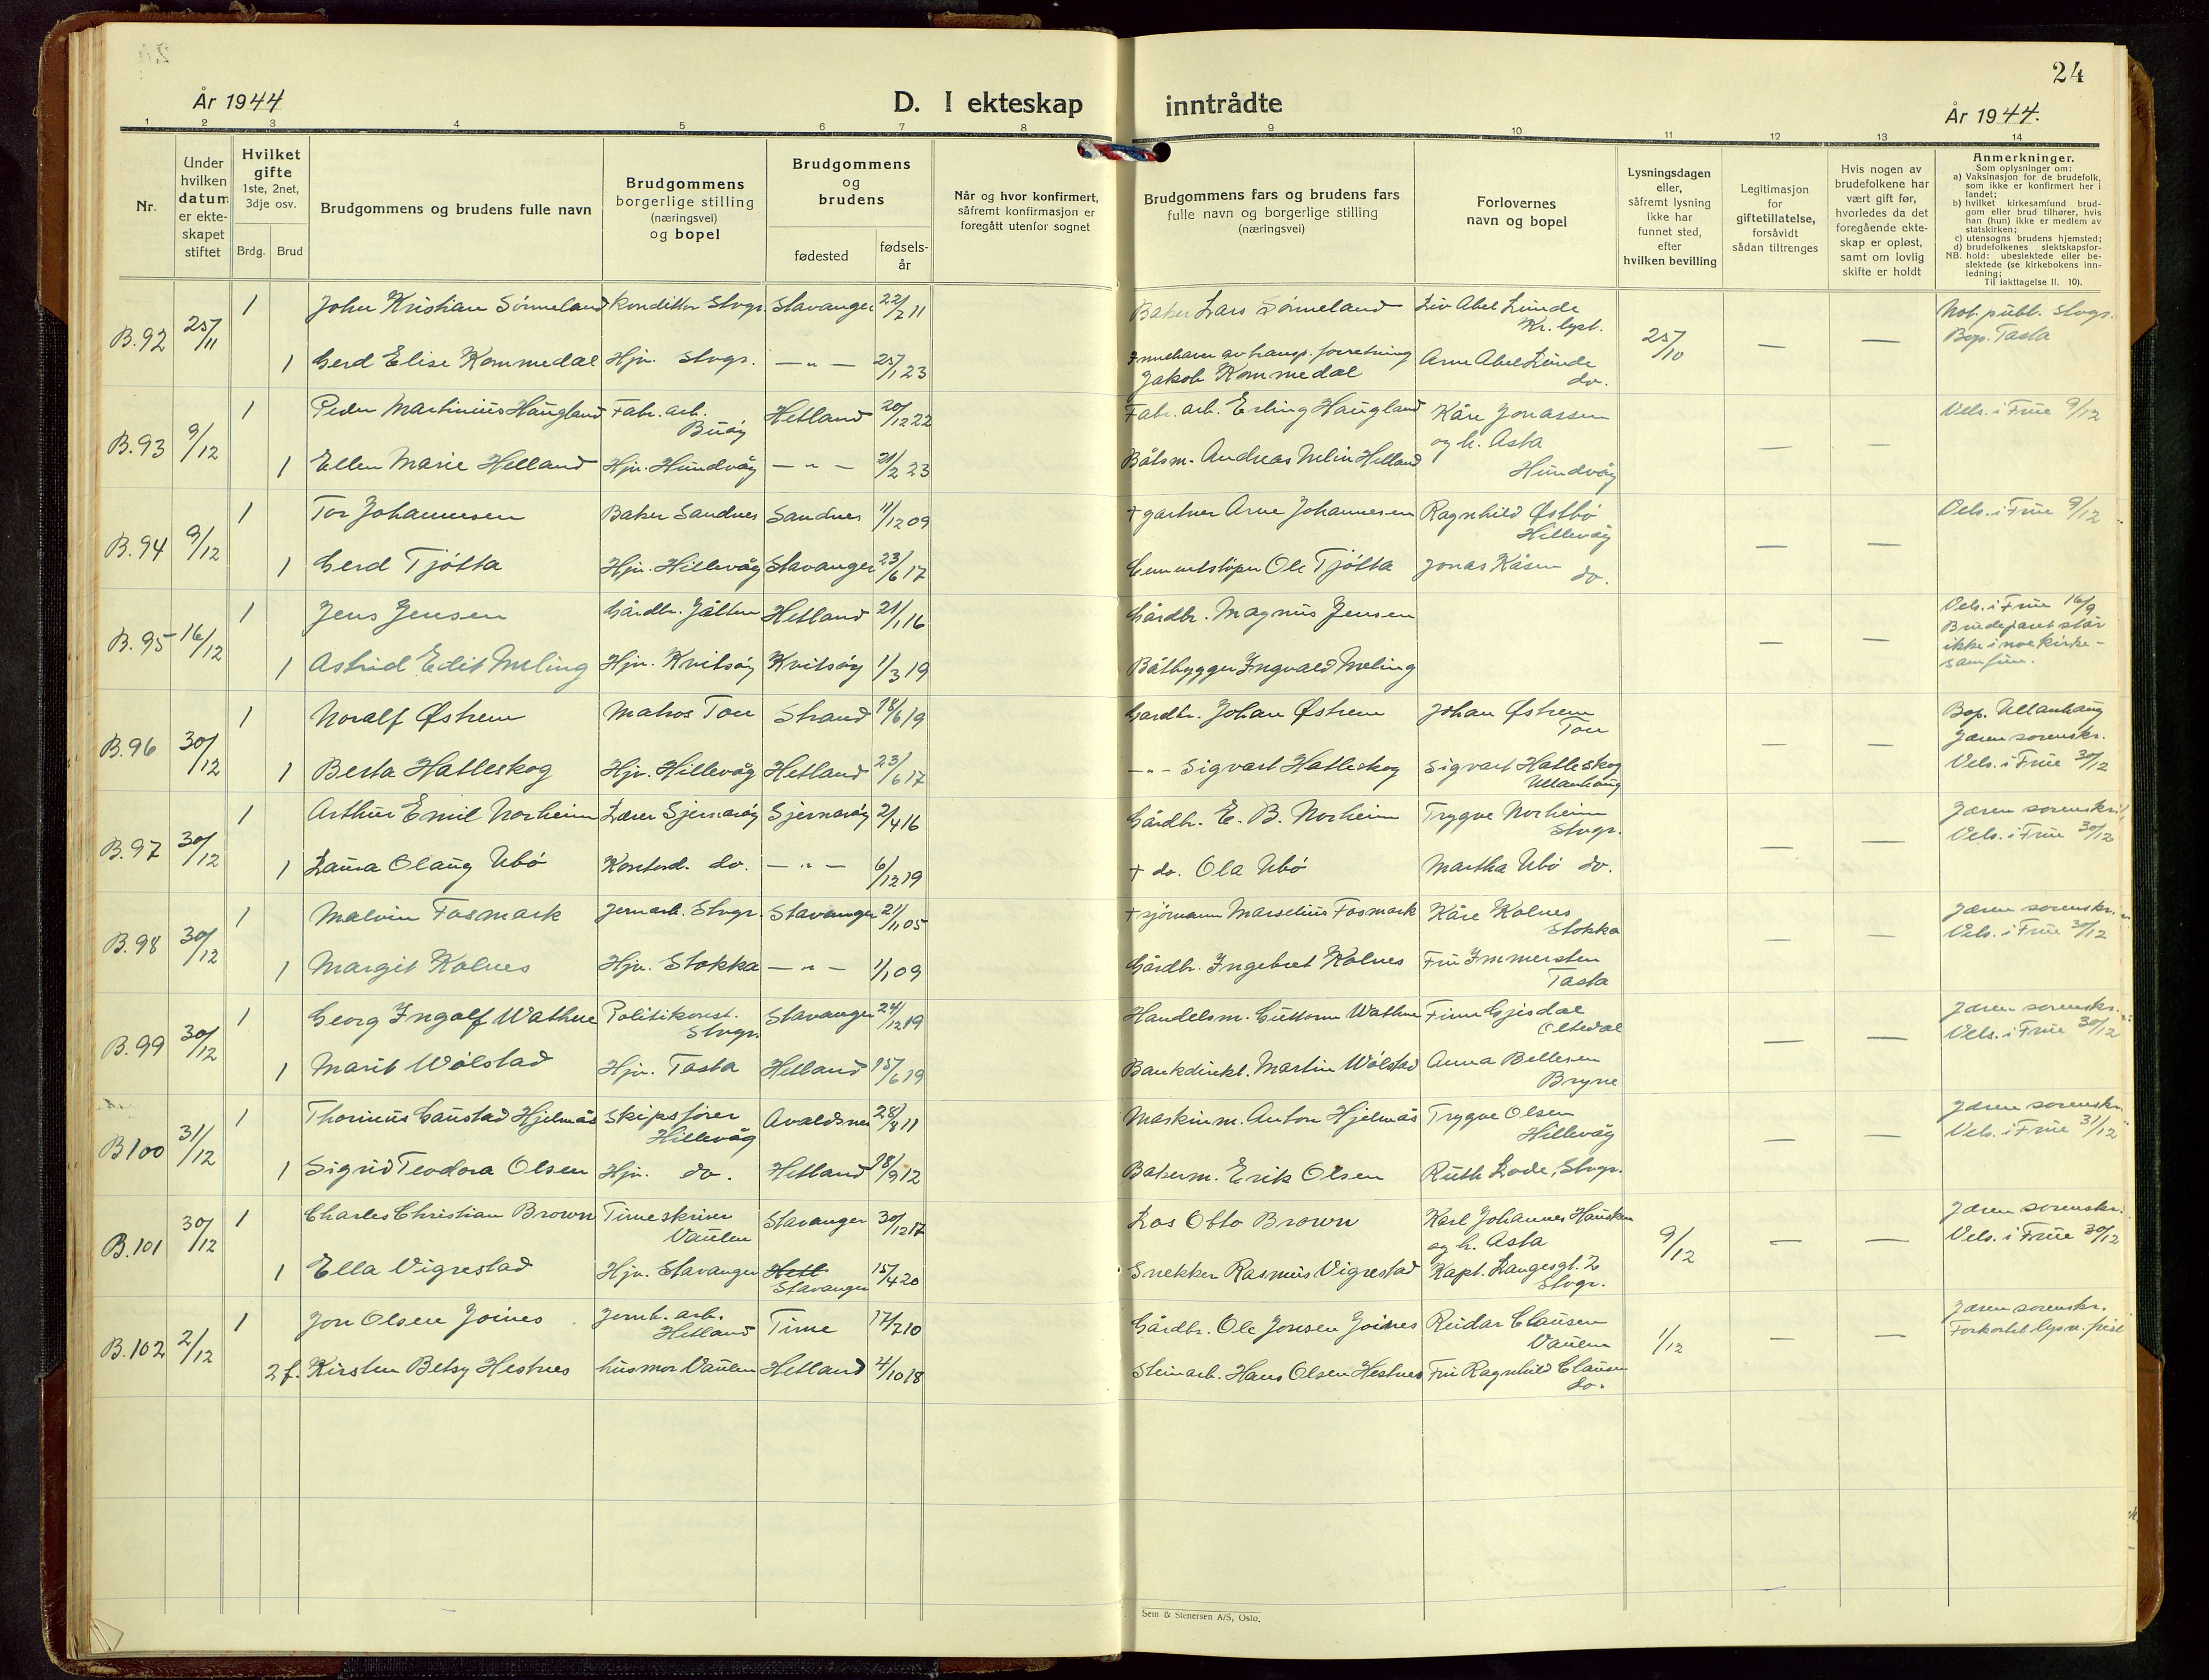 24
År 1944
D. I ekteskap inntrådte
År 1944.
1 2 3 4 5 6 7 8 9 10 11 12 13 14
Nr.
Under hvilken datum er ekte-skapet stiftet
Hvilket gifte
1ste, 2net, 3dje osv.
Brdg. Brud
Brudgommens og brudens fulle navn
Brudgommens borgerlige stilling (næringsvei) og bopel
Brudgommens og brudens
fødested
fødsels-år
Når og hvor konfirmert, såfremt konfirmasjon er foregått utenfor sognet
Brudgommens fars og brudens fars fulle navn og borgerlige stilling (næringsvei)
Forlovernes navn og bopel
Lysningsdagen eller, såfremt lysning ikke har funnet sted, efter hvilken bevilling
Legitimasjon for giftetillatelse, forsåvidt sådan tiltrenges
Hvis nogen av brudefolkene har vært gift før, hvorledes da det foregående ekte-skap er opløst, samt om lovlig skifte er holdt
Anmerkninger.
Som oplysninger om:
a) Vaksinasjon for de brudefolk, som ikke er konfirmert her i landet;
b) hvilket kirkesamfund brud-gom eller brud tilhører, hvis han (hun) ikke er medlem av statskirken;
c) utensogns brudens hjemsted;
d) brudefolkenes slektskapsfor-hold: ubeslektede eller be-slektede (se kirkebokens inn-ledning;
NB.
Til iakttagelse II. 10).
B.92 25/11 1 John Kristian Sørmeland Konditor Stvgr. Stavanger 22/2 11 Baker Lars Sørmeland Liv Abel Lunde Kr. lyst. 25/10 — — Not. publ. Stvgr. Bop. Tasta
1 Gerd Elise Kommedal Hjv. Stvgr. — " — 25/1 23 Innehaver av transp. forretning Jakob Kommedal Arne Abel Lunde do.
B.93 9/12 1 Peder Martinius Haugland Fabr. arb. Buøy Hetland 20/12 22 Fabr. arb. Erling Haugland Kåre Jonassen og h. Asta Hundvåg — — Vels. i Frue 9/12
1 Ellen Marie Helland Hjv. Hundvåg — " — 21/2 23 Båtsm. Andreas Helland
B.94 9/12 1 Tor Johannesen Baker Sandnes Sandnes 11/12 09 + gartner Arne Johannesen Ragnhild Østbø Hillevåg — — Vels. i Frue 9/12
1 Gerd Tjøtta Hjv. Hillevåg Stavanger 23/6 17 Cementstøper Ole Tjøtta Jonas Kåsen do.
B.95 16/12 1 Jens Jensen Gårdbr. Jåtten Hetland 21/1 16 Gårdbr. Magnus Jensen — — Vels. i Frue 16/9 Brudeparet står ikke i noe kirke-samfun.
1 Astrid Edit Meling Hjv. Kvitsøy Kvitsøy 1/3 19 Båtbygger Ingvald Meling
B.96 30/12 1 Noralf Østrem Matros Tou Strand 18/6 19 Gardbr. Johan Østrem Johan Østrem Tou — — Bop. Ullanhaug Jæren sorenskr. Vels. i Frue 30/12
1 Berta Hatleskog Hjv. Hillevåg Hetland 23/6 17 — " — Sigvart Hatleskog Sigvart Hatleskog Ullanhaug
B.97 30/12 1 Arthur Emil Norheim Lærer Sjernarøy Sjernarøy 2/4 16 Gårdbr. E. B. Norheim Trygve Norheim Stvgr. — — Jæren sorenskri. Vels. i Frue 30/12
1 Laura Olaug Ubø Kontord. do. — " — 6/12 19 + do. Ola Ubø Martha Ubø do.
B.98 30/12 1 Malvin Fosmark Jernarb. Stvgr. Stavanger 21/1 05 + sjømann Marselius Fosmark Kåre Kolnes Stokka — — Jæren sorenskr. Vels. i Frue 30/12
1 Margit Kolnes Hjv. Stokka — " — 1/1 09 Gårdbr. Ingebret Kolnes Fru Immersten Tasta
B.99 30/12 1 Georg Ingolf Wathne Politikonst. Stvgr. Stavanger 24/12 19 Handelsm. Guttorm Wathne Finn Gjesdal Oltedal — — Jæren sorenskr. Vels. i Frue 30/12
1 Marit Wølstad Hjv. Tasta Hetland 15/6 19 Bankdirekt. Martin Wølstad Anna Bellesen Bryne
B100 31/12 1 Thorinus Gaustad Hjelmås Skipsfører Hillevåg Avaldsnes 28/8 11 Maskinm. Anton Hjelmås Trygve Olsen Hillevåg — — Jæren sorenskr. Vels. i Frue 31/12
1 Sigrid Teodora Olsen Hjv. do. Hetland 18/9 12 Bakerm. Erik Olsen Ruth Lode, Stvgr.
B.101 30/12 1 Charles Christian Brown Timeskriver Vaulen Stavanger 30/12 17 Los Otto Brown Karl Johannes Hausken og h. Asta 9/12 — — Jæren sorenskr. Vels. i Frue 30/12
1 Ella Vigrestad Hjv. Stavanger Hetl Stavanger 15/4 20 Snekker Rasmus Vigrestad Kapt. Langesgt. 2 Stvgr.
B.102 2/12 1 Jon Olsen Joines Jernb. arb. Hetland Time 17/2 10 Gårdbr. Ole Jonsen Joines Reidar Clausen Vaulen 1/12 — — Jæren sorenskr. Forkortet lysn. frist
2 f. Kirsten Betsy Hestnes husmor Vaulen Hetland 4/10 18 Steinarb. Hans Olsen Hestnes Fru Ragnhild Clausen do.
Sem & Stenersen A/S, Oslo.